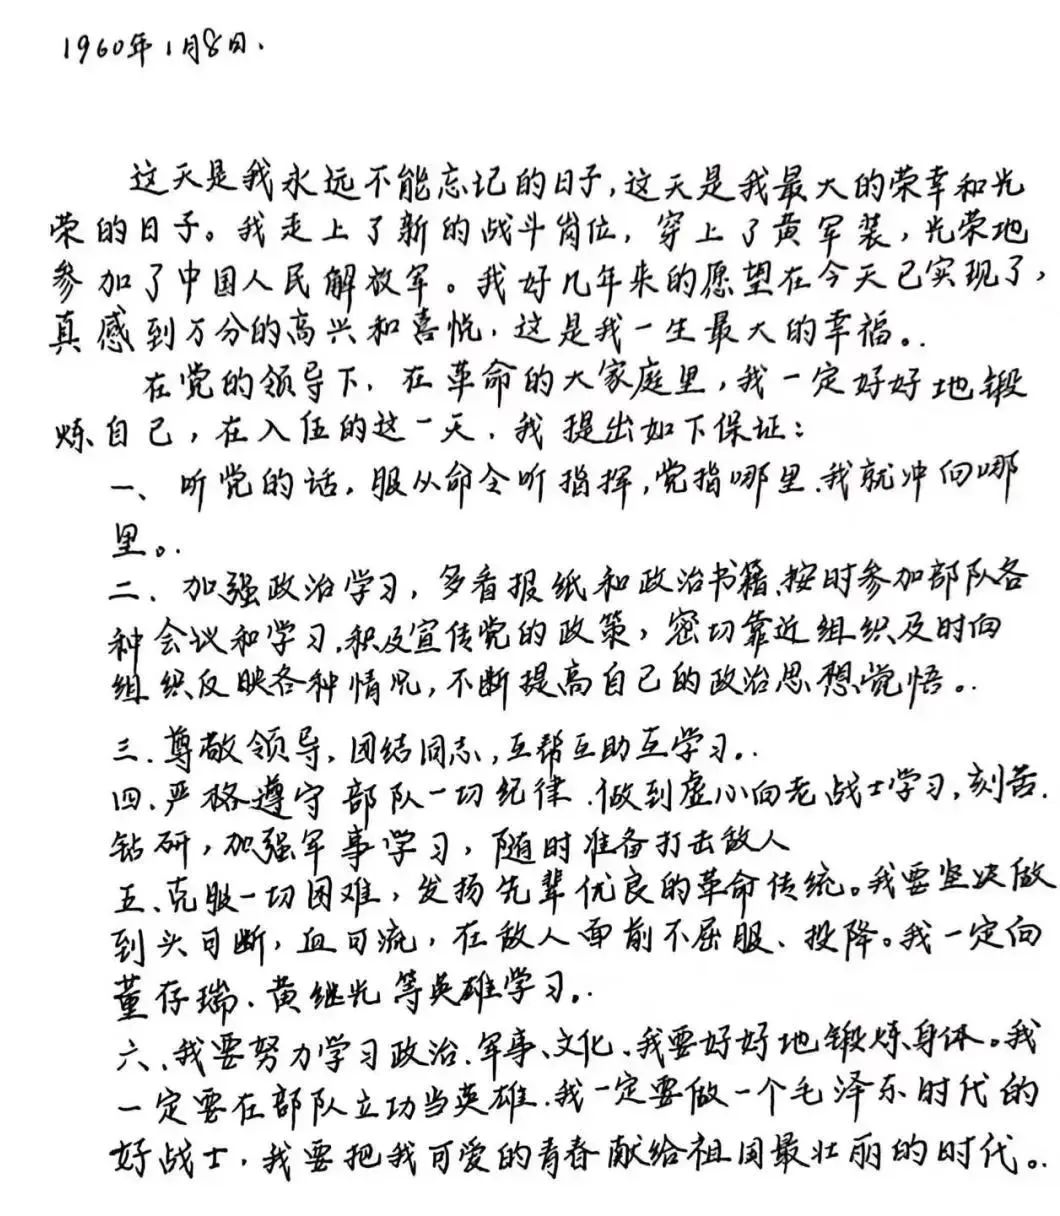 1960年1月8日.
这天是我永远不能忘记的日子,这天是我最大的荣幸和光
荣的日子。我走上了新的战斗岗位,穿上了黄军装,光荣地
参加了中国人民解放军。我好几年来的愿望在今天已实现了,
真感到万分的高兴和喜悦,这是我一生最大的幸福。.
在党的领导下,在革命的大家庭里,我一定好好地锻
炼自己,在入伍的这一天,我提出如下保证:
一、听党的话,服从命令听指挥,党指哪里,我就冲向哪
里。.
二、加强政治学习,多看报纸和政治书籍,按时参加部队各
种会议和学习,积及宣传党的政策,密切靠近组织及时向
组织反映各种情况,不断提高自己的政治思想觉悟。.
三.尊敬领导,团结同志,互帮互助互学习。.
四.严格遵守部队一切纪律.做到虚心向老战士学习,刻苦.
钻研,加强军事学习,随时准备打击敌人
五、克服一切困难,发扬先辈优良的革命传统。我要坚决做
到头可断,血可流,在敌人面前不屈服、投降。我一定向
董存瑞、黄继光等英雄学习。.
六、我要努力学习政治.军事、文化、我要好好地锻炼身体。我
一定要在部队立功当英雄.我一定要做一个毛泽东时代的
好战士,我要把我可爱的青春献给祖国最壮丽的时代。.